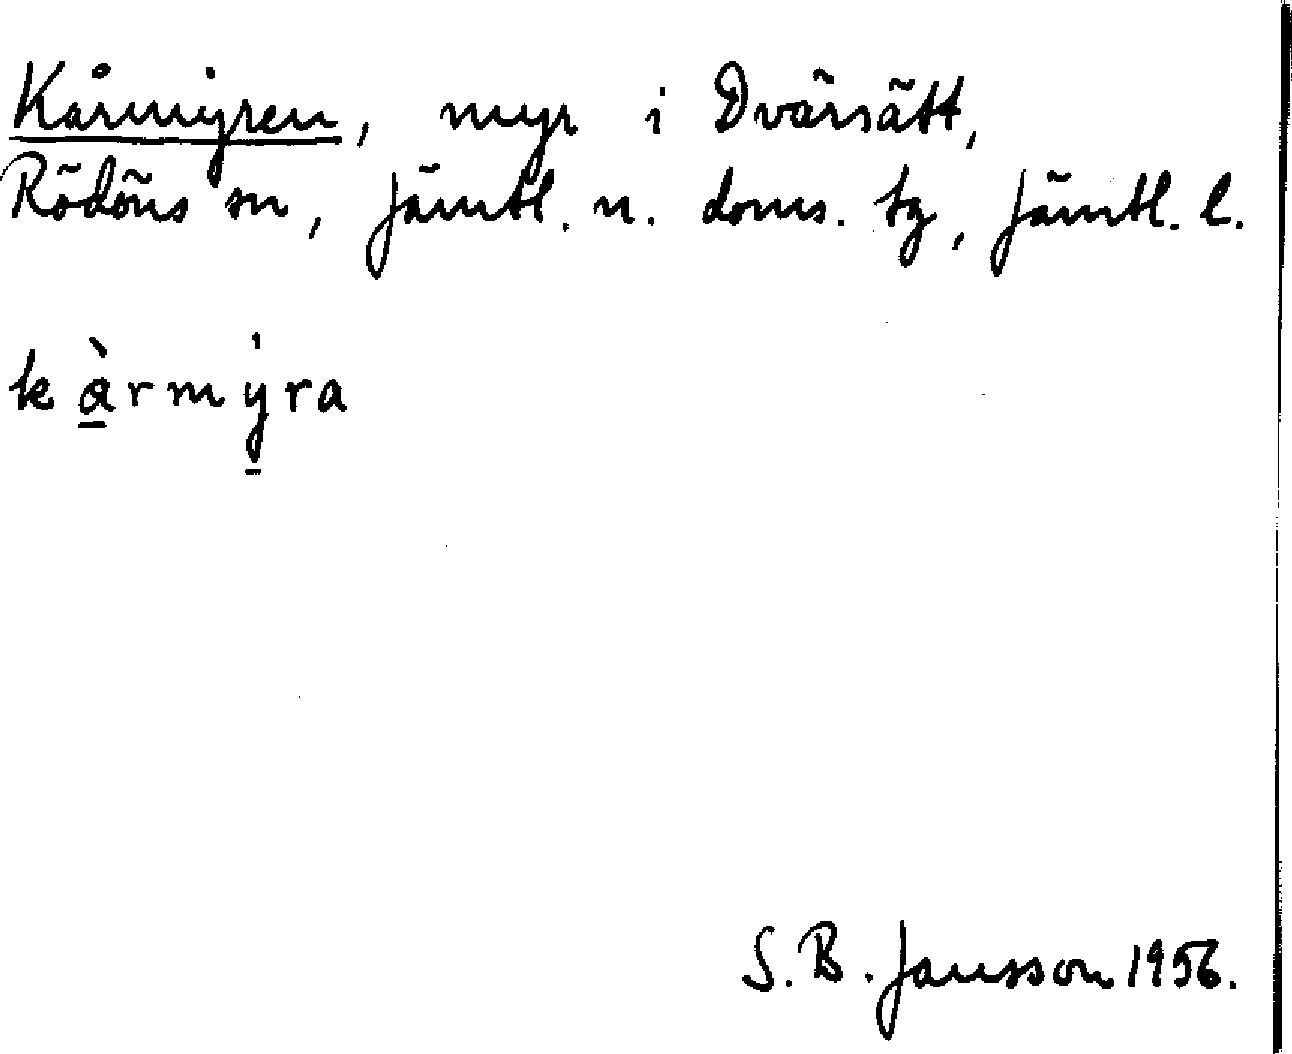 Kårmyren, myr i Dvärsätt,
Rödöns sn, Jämtl. n. doms. tg, Jämtl. l.
kàrmyra
S. B. Jansson 1956.